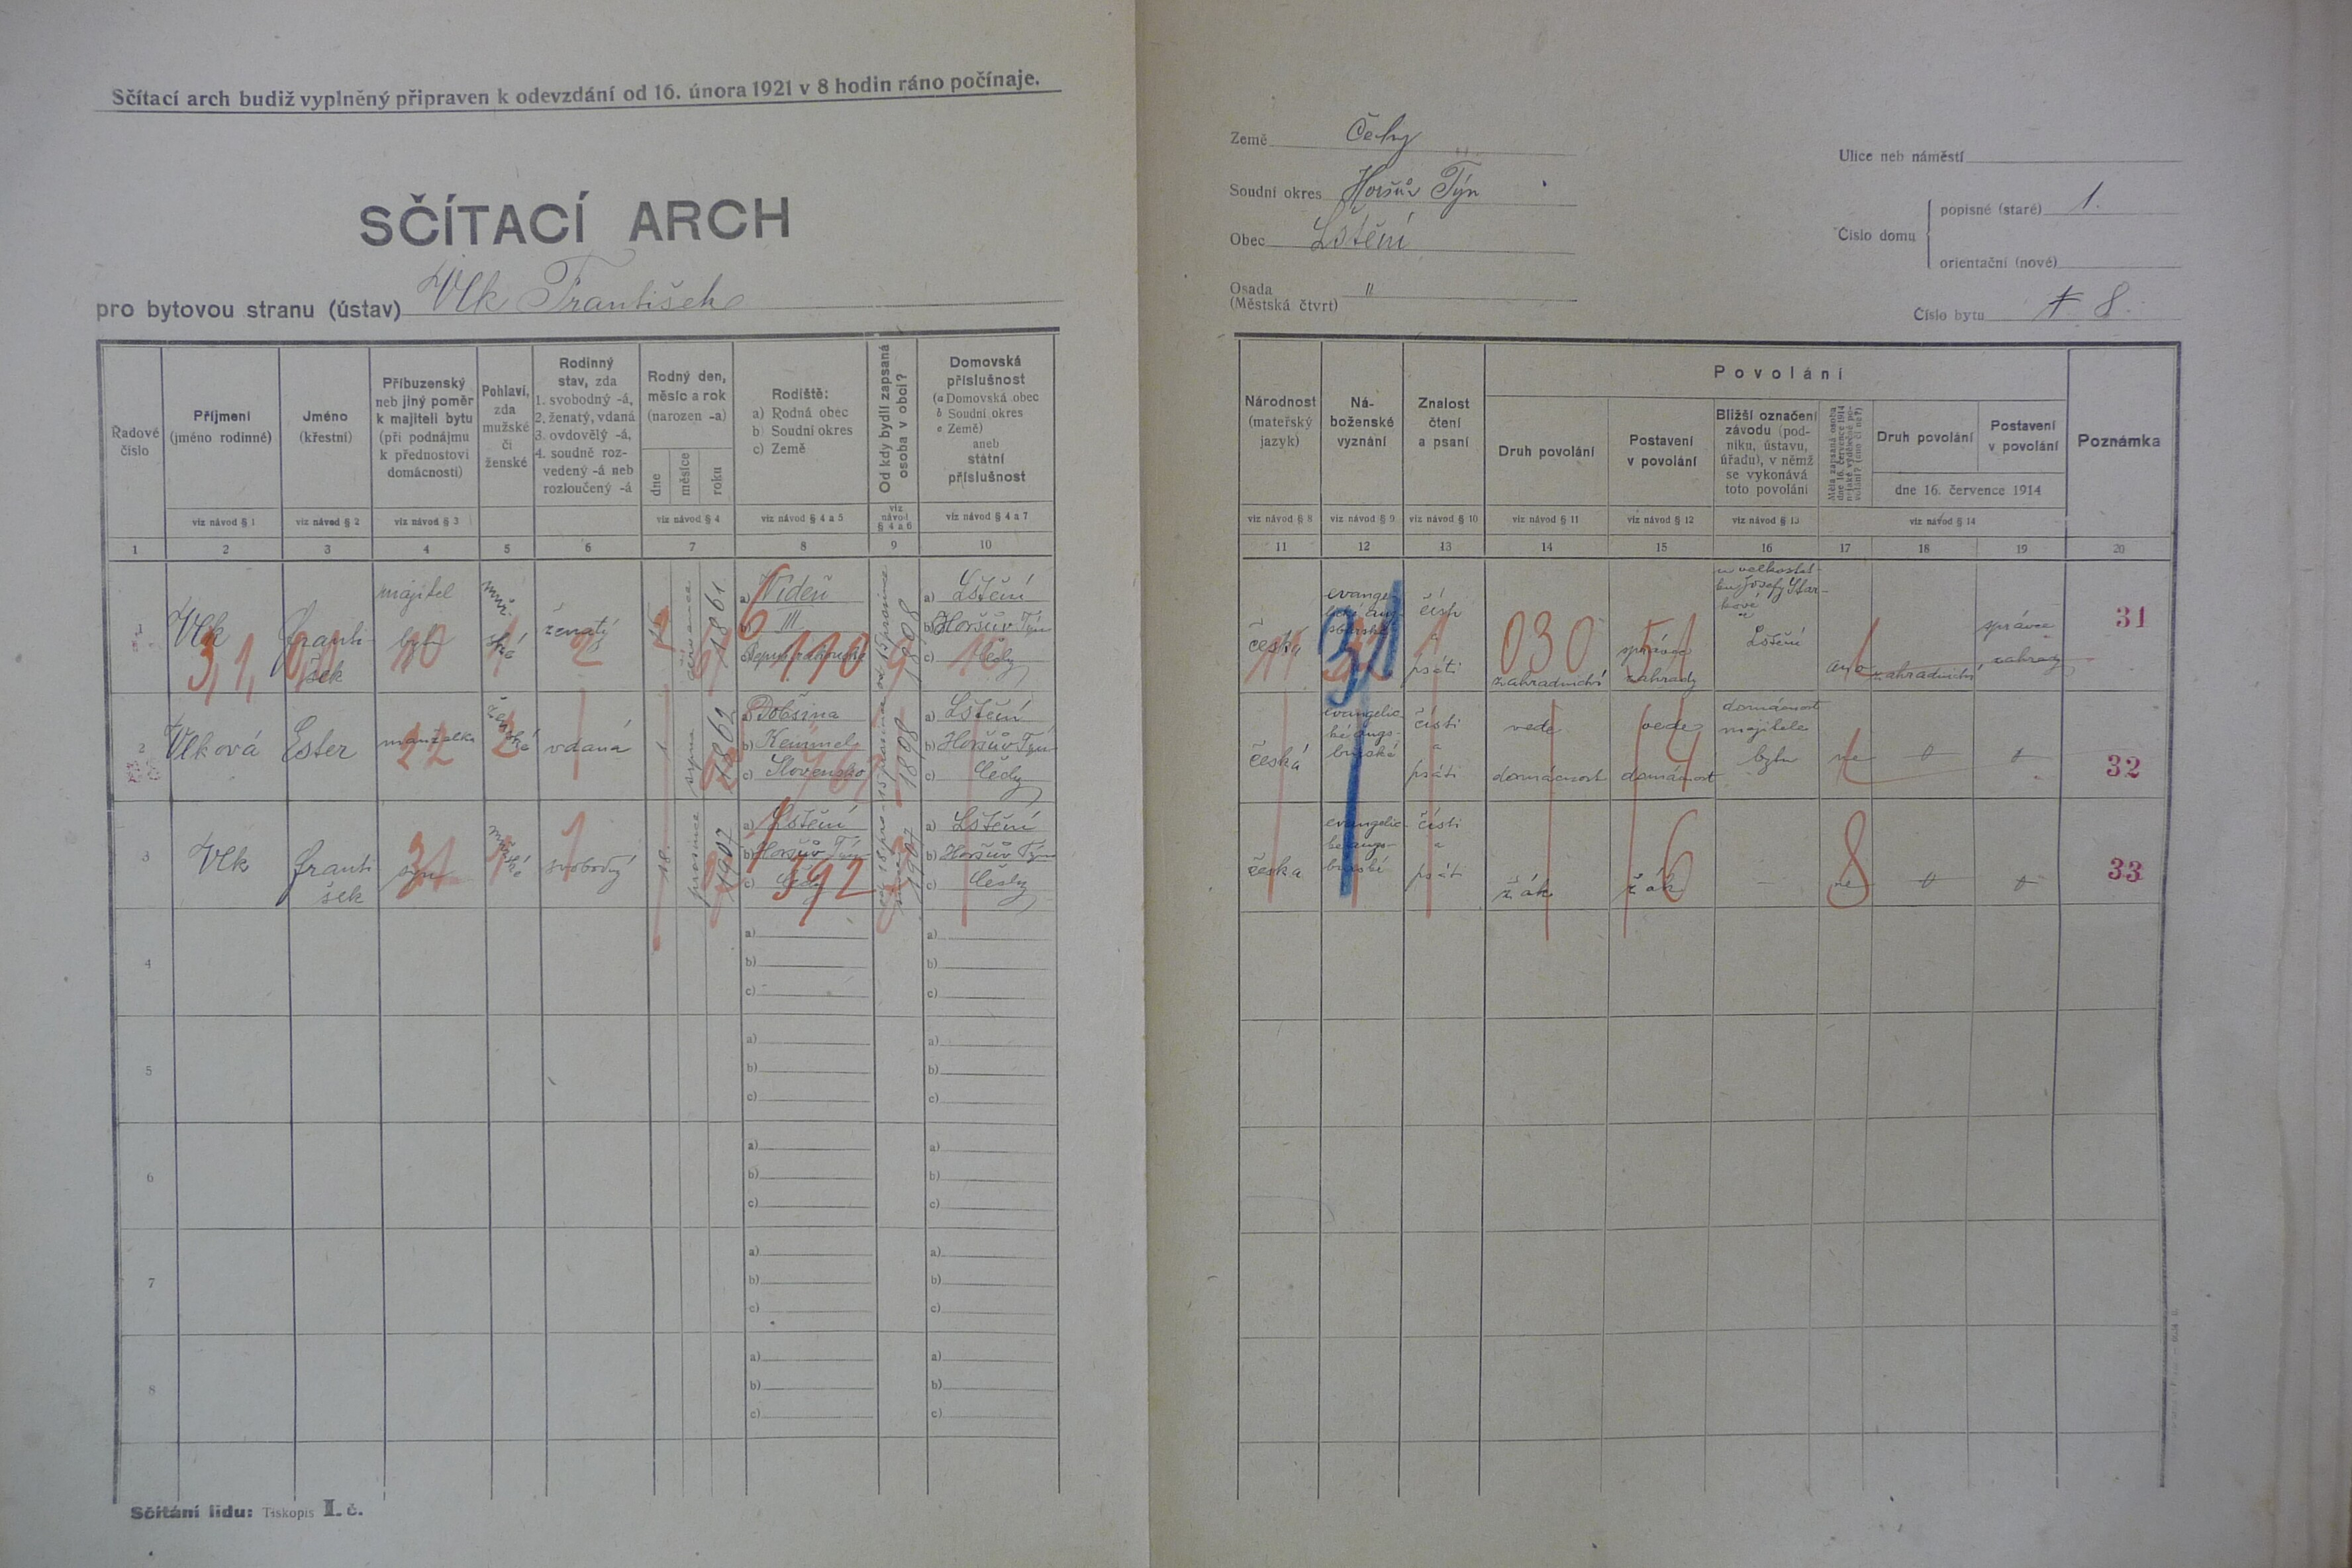 Sčítací arch budiž vyplněný připraven k odevzdání od 16. února 1921 v 8 hodin ráno počínaje.
SČÍTACÍ ARCH
pro bytovou stranu (ústav) Vlk František
Země Čechy
Soudní okres Horšův Týn
Obec Lštění
Osada "
(Městská čtvrt)
Ulice neb náměstí
Číslo domu
popisné (staré) 1.
orientační (nové)
Číslo bytu 8.
Řadové číslo
Příjmení
(jméno rodinné)
viz návod § 1
Jméno
(křestní)
viz návod § 2
Příbuzenský
neb jiný poměr
k majiteli bytu
(při podnájmu
k přednostovi
domácnosti)
viz návod § 3
Pohlaví,
zda
mužské
či
ženské
Rodinný
stav, zda
1. svobodný -á,
2. ženatý, vdaná
3. ovdovělý -á,
4. soudně roz-
vedený -á neb
rozloučený -á
Rodný den,
měsíc a rok
(narozen -a)
dne
měsíce
roku
viz návod § 4
Rodiště:
a) Rodná obec
b) Soudní okres
c) Země
viz návod § 4 a 5
Od kdy bydlí zapsaná
osoba v obci?
viz
návod
§ 4 a 6
Domovská
příslušnost
(a Domovská obec
b Soudní okres
c Země)
aneb
státní
příslušnost
viz návod § 4 a 7
Národnost
(mateřský
jazyk)
viz návod § 8
Ná-
boženské
vyznání
viz návod § 9
Znalost
čtení
a psaní
viz návod § 10
Povolání
Druh povolání
viz návod § 11
Postavení
v povolání
viz návod § 12
Bližší označení
závodu (pod-
niku, ústavu,
úřadu), v němž
se vykonává
toto povolání
viz návod § 13
Měla zapsaná osoba
dne 16. července 1914
nějaké výdělečné po-
volání? (ano či ne?)
Druh povolání
Postavení
v povolání
dne 16. července 1914
viz návod § 14
Poznámka
1 2 3 4 5 6 7 8 9 10
11 12 13 14 15 16 17 18 19 20
1
Vlk
Franti-
šek
majitel
bytu
muž-
ská
ženatý
července
1861
a) Vídeň
b) III
c)
1898
a) Lštění
b) Horšův Týn
c) Čechy
český
evange-
číst
a
psáti
zahradnictví
správce
zahrady
u velkostat-
ku Josefy Star-
kové
Lštění
ano
zahradnictví
správce
zahrady
31
2
Vlková
Ester
manželka
ženská
vdaná
1
srpna
1862
a) Dobšina
b)
c) Slovensko
1898
a) Lštění
b) Horšův Týn
c) Čechy
česká
evangelic-
ké augs-
burské
čísti
a
psáti
vede
domácnost
vede
domácnost
domácnost
majitele
bytu
ne
0
0
32
3
Vlk
Franti-
šek
syn
mužské
svobodný
18.
prosince
1907
a) Lštění
b) Horšův Týn
c) Čechy
1907
a) Lštění
b) Horšův Týn
c) Čechy
česka
evangelic-
ké augs-
burské
čísti
a
psáti
žák
žák
—
ne
0
0
33
4
a)
b)
c)
a)
b)
c)
5
a)
b)
c)
a)
b)
c)
6
a)
b)
c)
a)
b)
c)
7
a)
b)
c)
a)
b)
c)
8
a)
b)
c)
a)
b)
c)
Sčítání lidu: Tiskopis I. č.